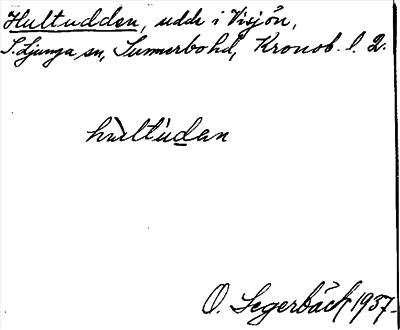 Hultudden, udde i Visjön,
S. Ljunga sn, Sunnerbo hd, Kronob. l. 2.
hultudan
O. Segerbäck 1937.